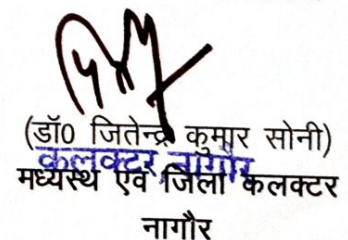 (डॉ0 जितेन्द्र कुमार सोनी)
कलक्टर, नागौर
मध्यस्थ एवं जिला कलक्टर
नागौर